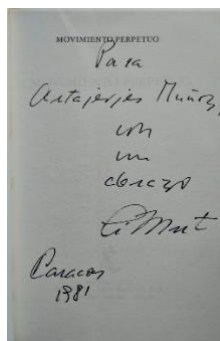 MOVIMIENTO PERPETUO
Para
Artajerjes Muñoz,
con
un
abrazo
Caracas
1981